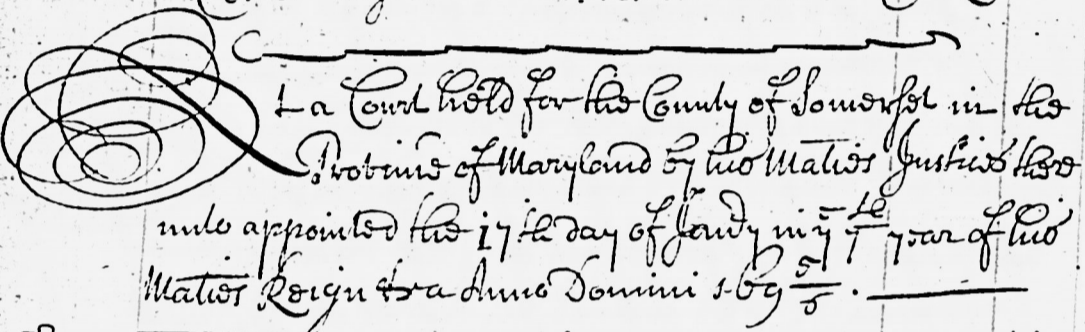 At a Court held for the County of Somerset in the
Province of Maryland by his Maties Justices there
unto appointed the 17th day of Janry in ye 7th year of his
Maties Reign &ca Anno Domini 1695/6.